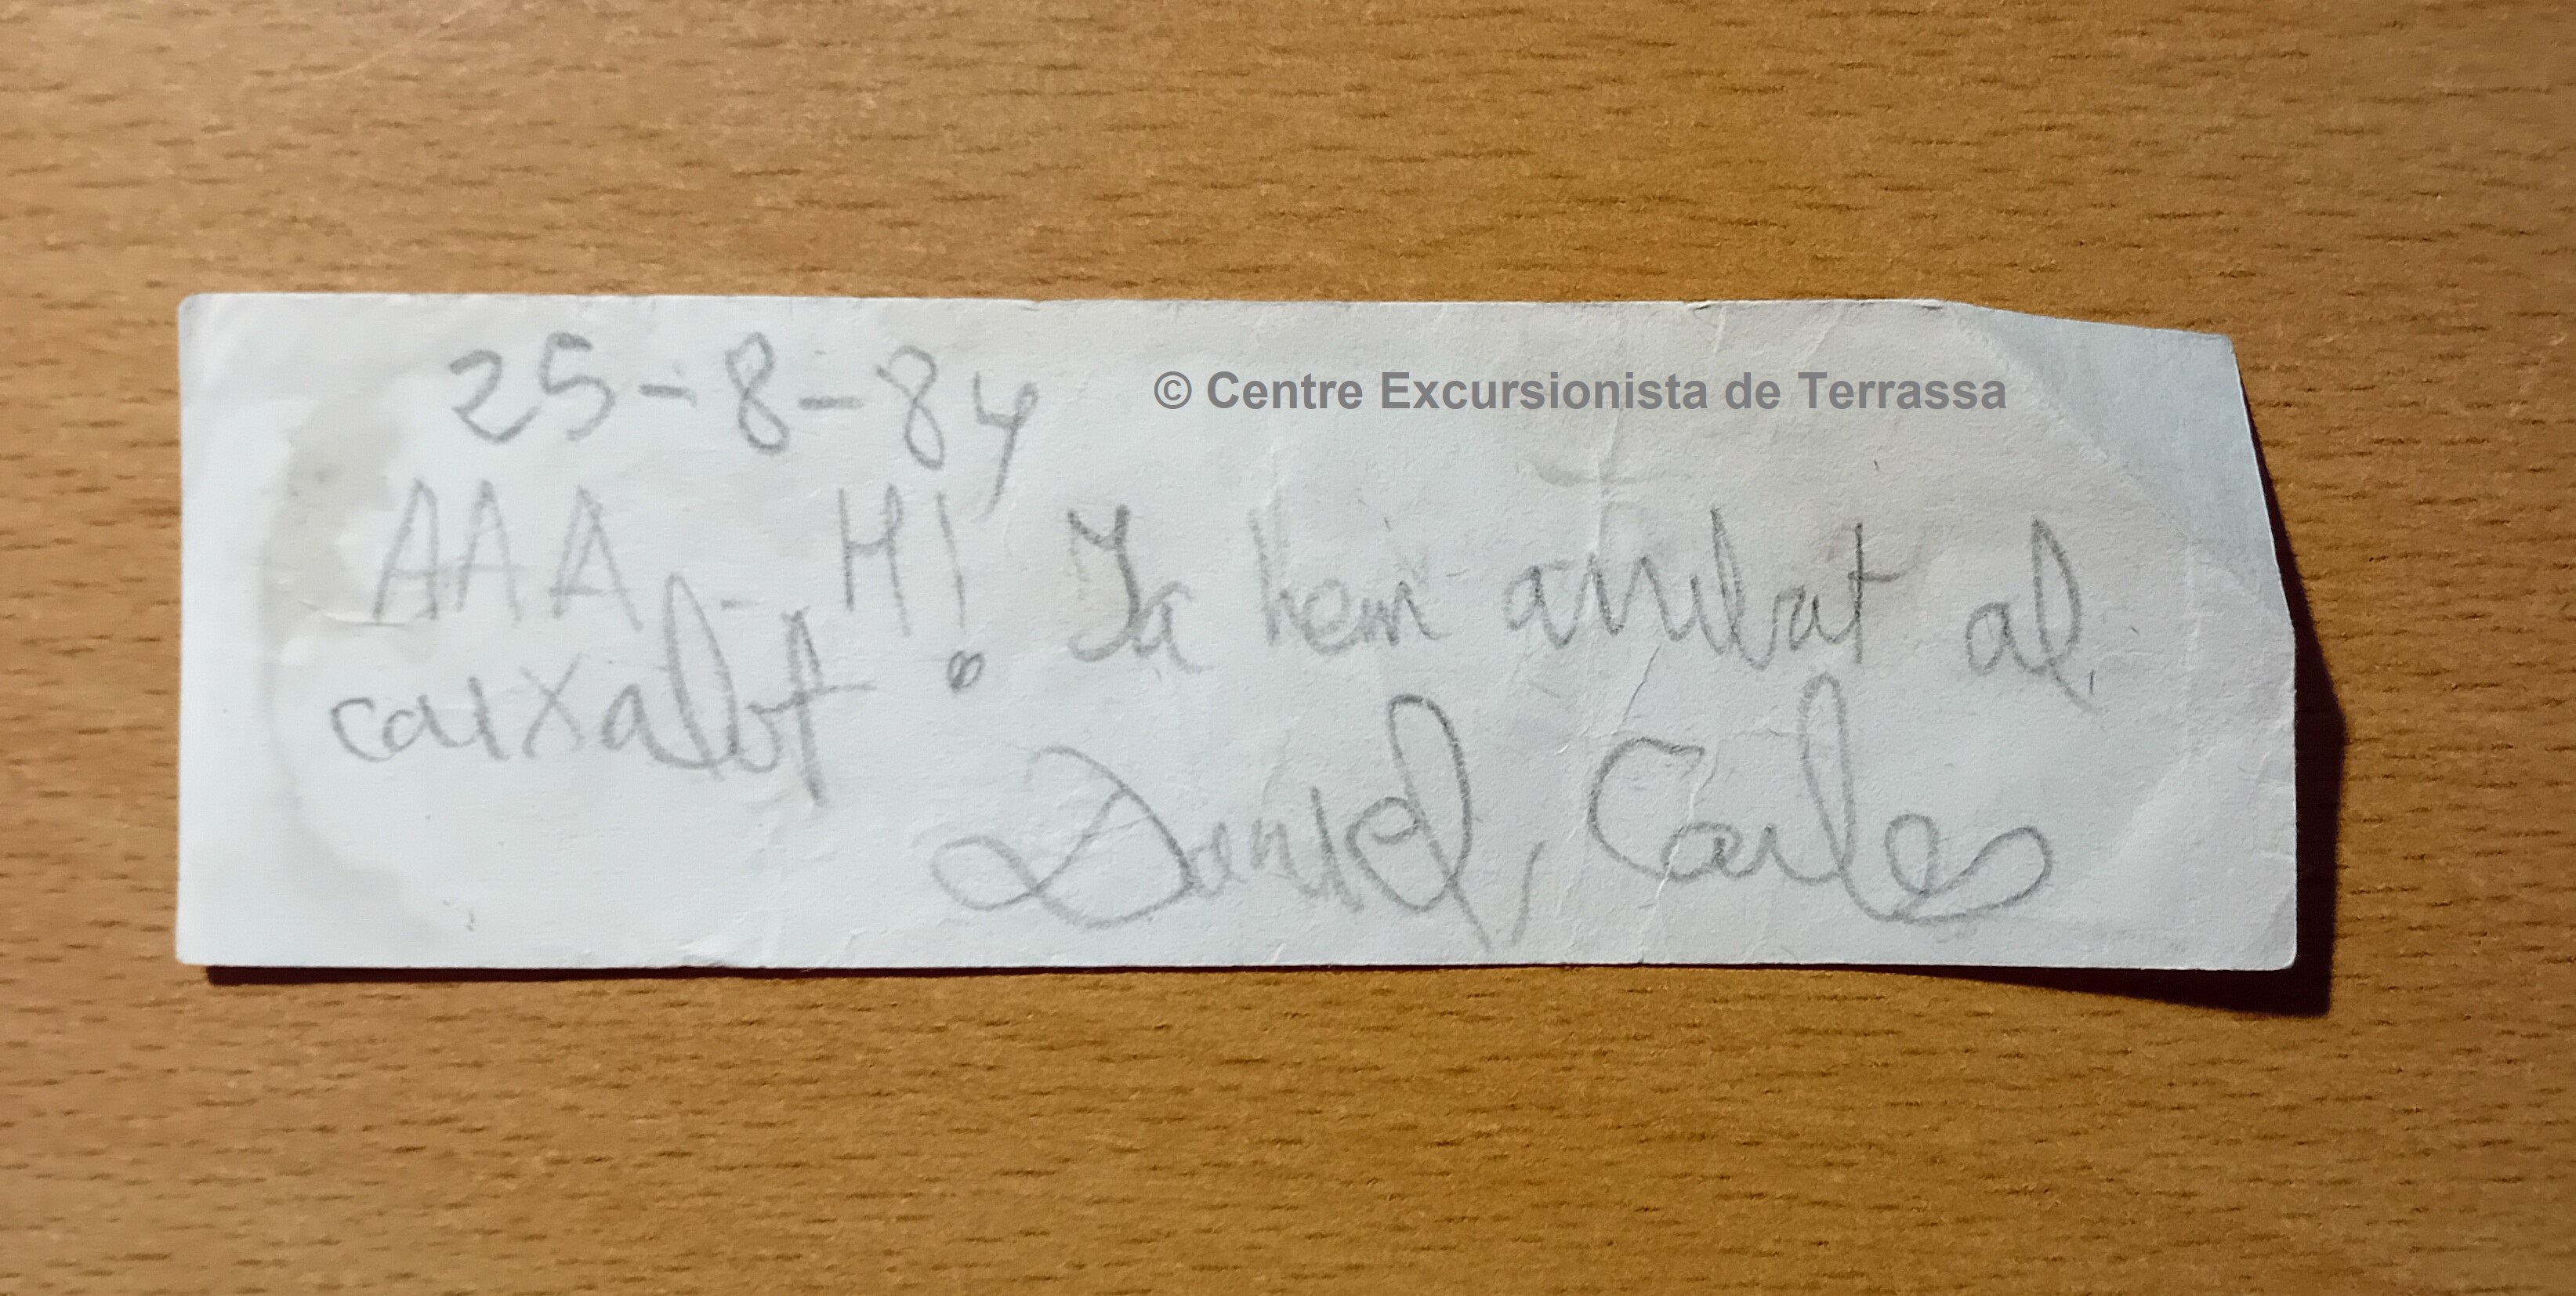 25-8-84
© Centre Excursionista de Terrassa
AAA - H! Ja hem arribat al
caixalot
Daniel, Carles